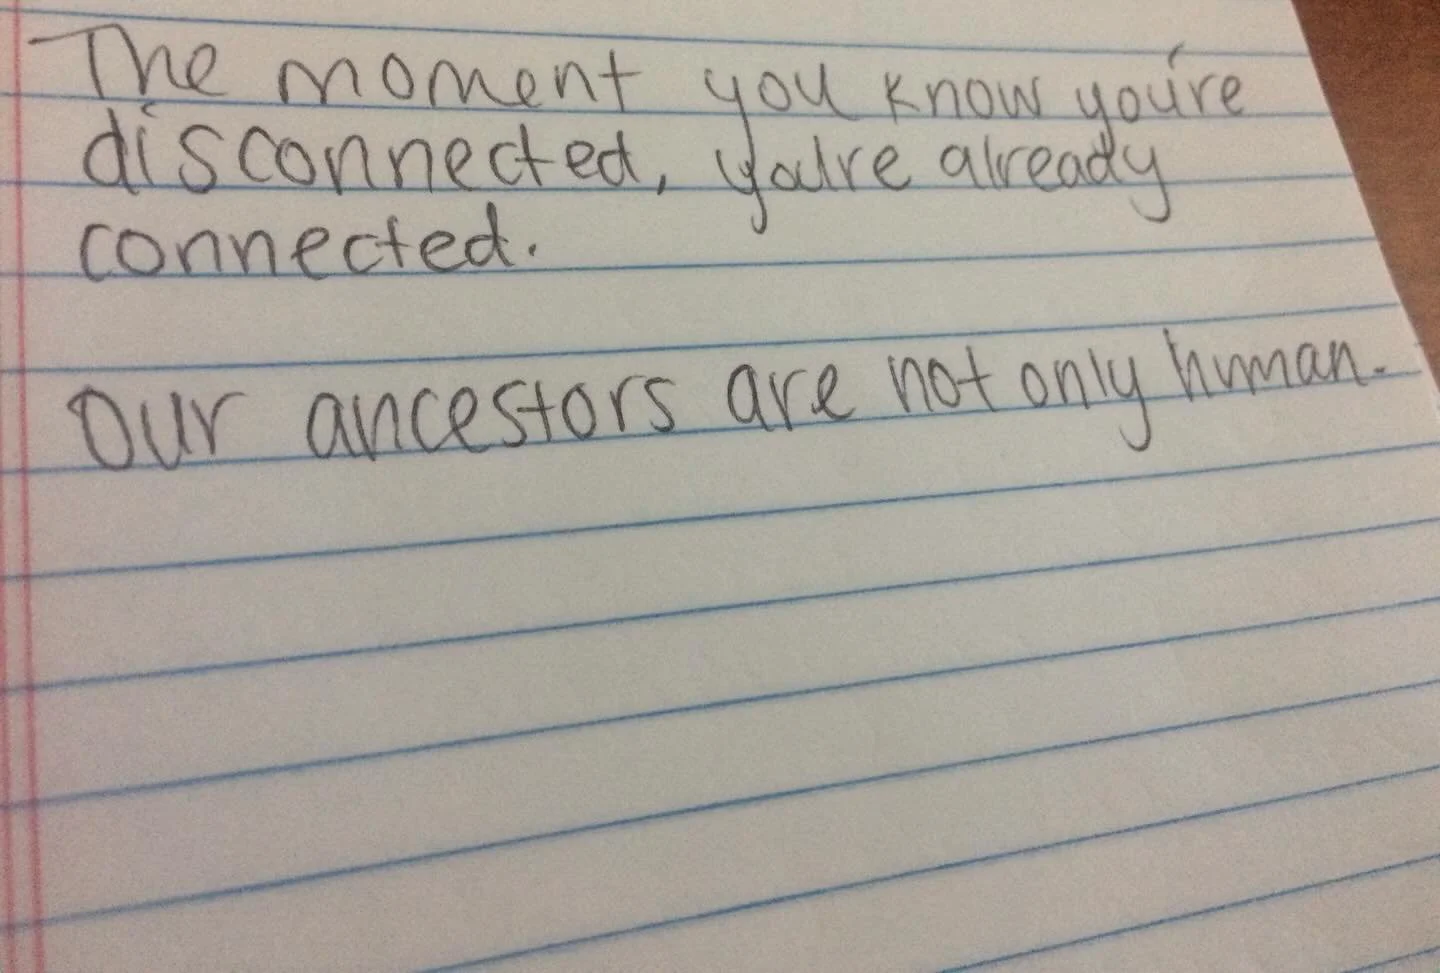 The moment you know you're
disconnected, you're already
connected.
Our ancestors are not only human.